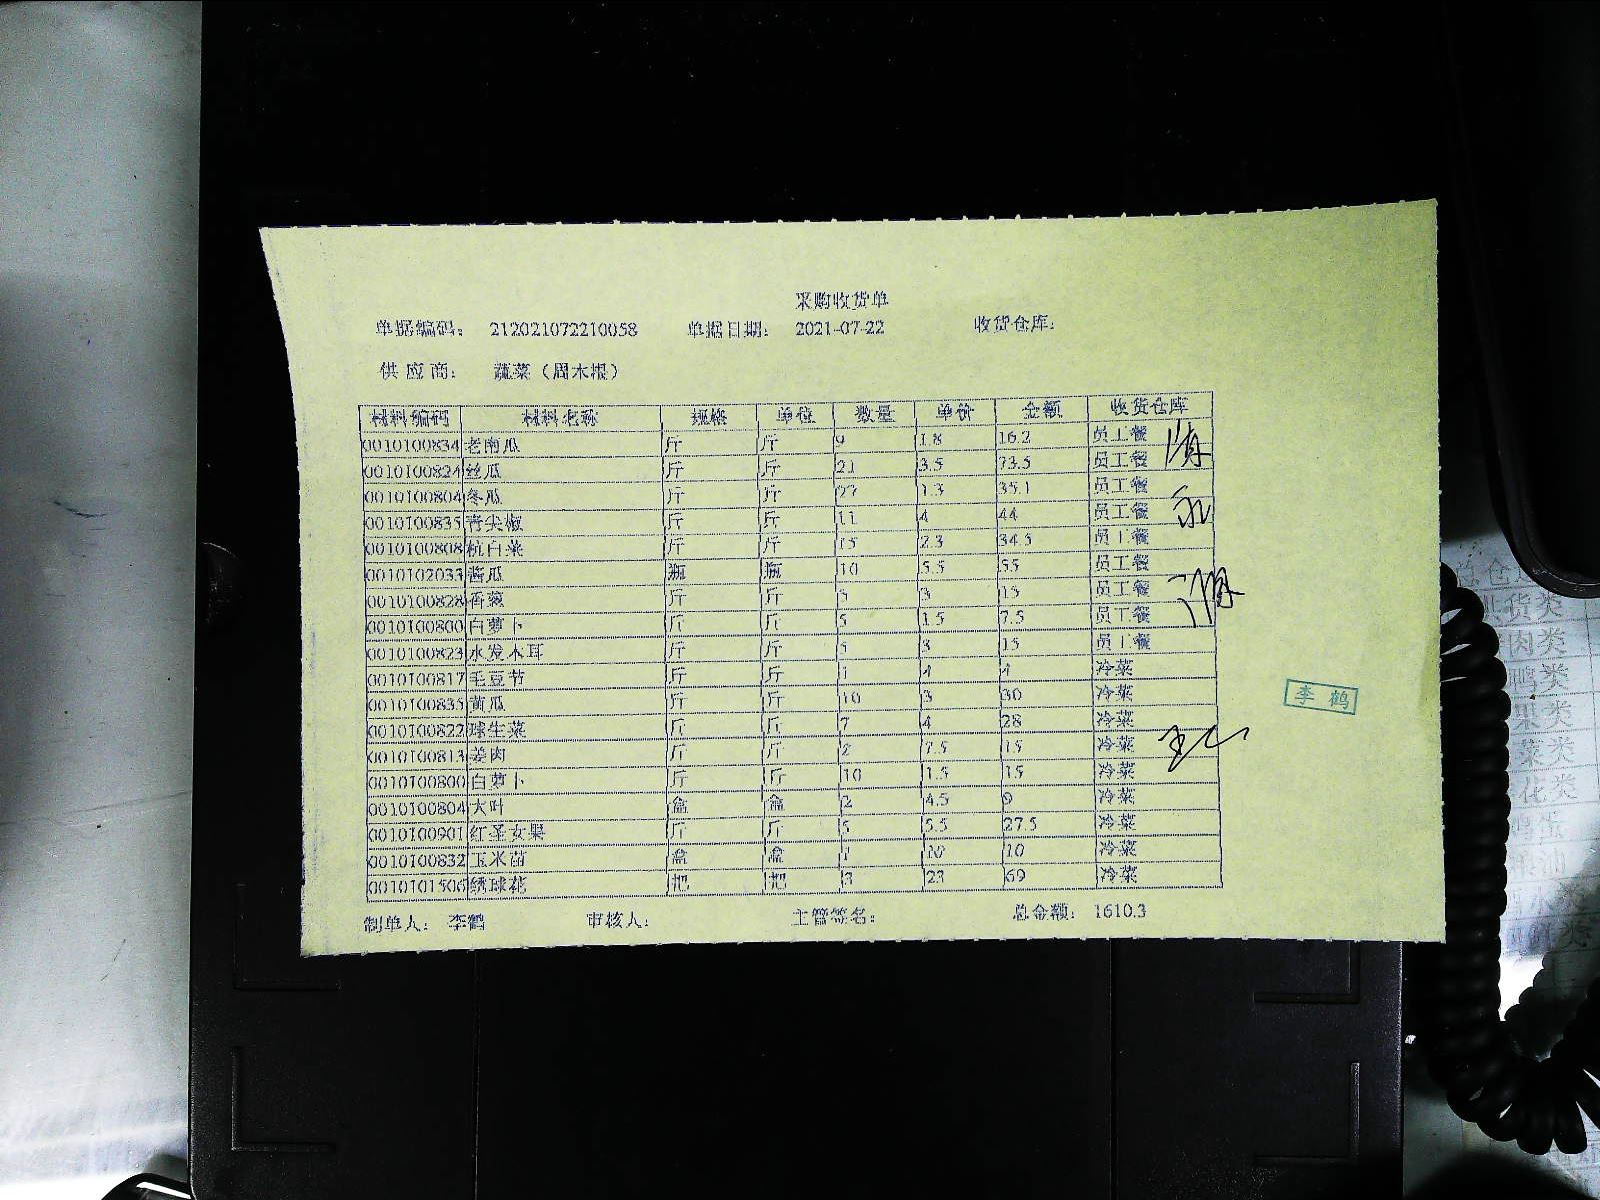 采购收货单
单据编码： 212021072210058 单据日期： 2021-07-22 收货仓库：
供应商： 蔬菜（周木根）
材料编码 材料名称 规格 单位 数量 单价 金额 收货仓库
0010100834 老南瓜 斤 斤 9 1.8 16.2 员工餐
0010100824 丝瓜 斤 斤 21 3.5 73.5 员工餐
0010100804 冬瓜 斤 斤 27 1.3 35.1 员工餐
0010100835 青尖椒 斤 斤 11 4 44 员工餐
0010100808 杭白菜 斤 斤 15 2.3 34.5 员工餐
0010102033 酱瓜 瓶 瓶 10 5.5 55 员工餐
0010100828 香葱 斤 斤 5 3 15 员工餐
0010100800 白萝卜 斤 斤 5 1.5 7.5 员工餐
0010100823 水发木耳 斤 斤 5 3 15 员工餐
0010100817 毛豆节 斤 斤 1 4 4 冷菜
0010100835 黄瓜 斤 斤 10 3 30 冷菜
0010100822 球生菜 斤 斤 7 4 28 冷菜
0010100813 姜肉 斤 斤 2 7.5 15 冷菜
0010100800 白萝卜 斤 斤 10 1.5 15 冷菜
0010100804 大叶 盒 盒 2 4.5 9 冷菜
0010100901 红圣女果 斤 斤 5 5.5 27.5 冷菜
0010100832 玉米苗 盒 盒 1 10 10 冷菜
0010101506 绣球花 把 把 3 23 69 冷菜
制单人： 李鹤 审核人： 主管签名： 总金额： 1610.3
李鹤
货类
肉类
鸭类
果类
菜类